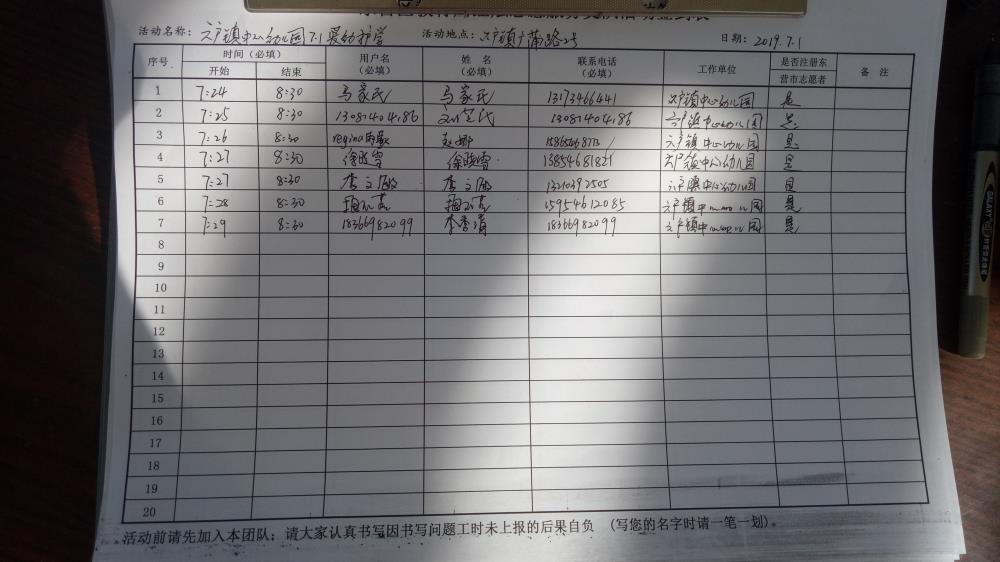 活动名称: 六户镇中心幼儿园7.1爱幼护学 活动地点: 六户镇广蒲路25 日期: 2019.7.1
序号 时间（必填） 用户名（必填） 姓名（必填） 联系电话（必填） 工作单位 是否注册东营市志愿者 备注
开始 结束
1 7:24 8:30 马家民 马家民 13173466441 六户镇中心幼儿园 是
2 7:25 8:30 13081404186 13081404186 六户镇中心幼儿园 是
3 7:26 8:30 regina 赵娜 六户镇中心幼儿园 是
4 7:27 8:30 徐晓雪 徐晓雪 13854681821 六户镇中心幼儿园 是
5 7:27 8:30 李文 李文 13210392505 六户镇中心幼儿园 是
6 7:28 8:30 15954612085 六户镇中心幼儿园 是
7 7:29 8:30 18366982099 李秀清 18366982099 六户镇中心幼儿园 是
8
9
10
11
12
13
14
15
16
17
18
19
20
活动前请先加入本团队；请大家认真书写因书写问题工时未上报的后果自负 (写您的名字时请一笔一划)。
GALAXY